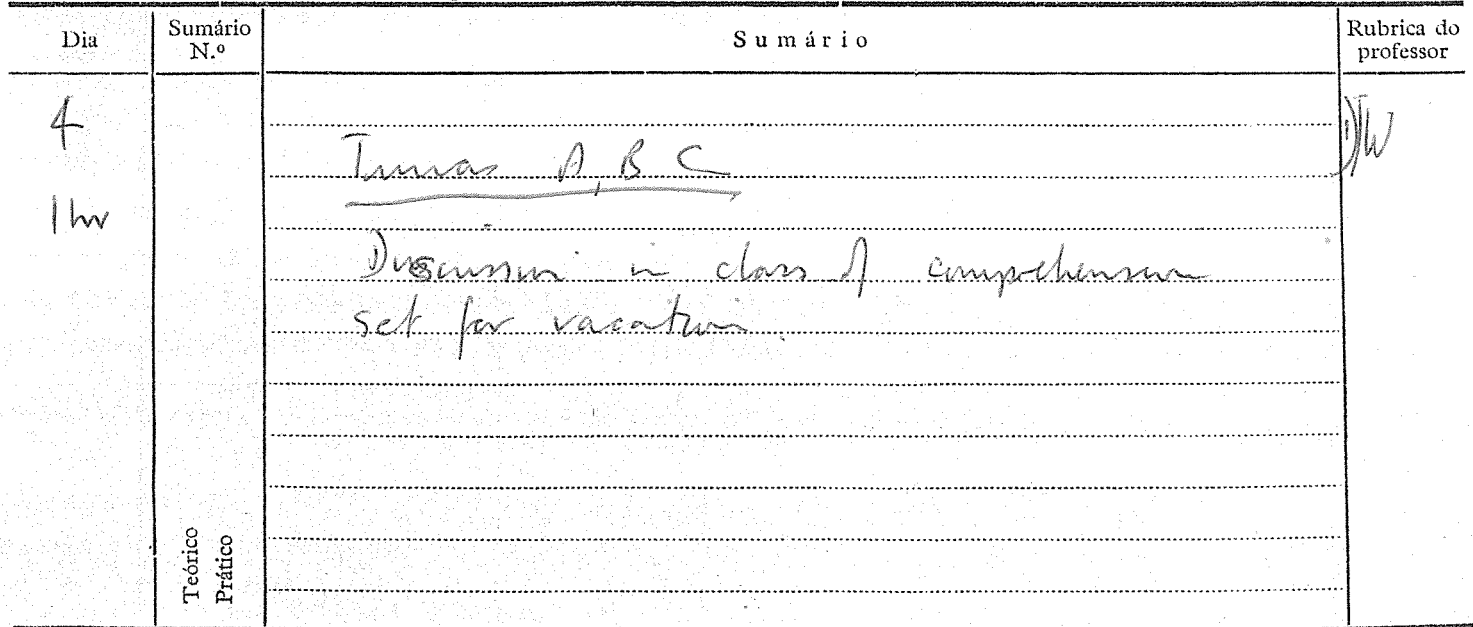 Dia
Sumário N.º
Sumário
Rubrica do professor
4
1 hr
Turmas A, B C
Discussion in class of comprehension
set for vacation.
DW
Teórico
Prático